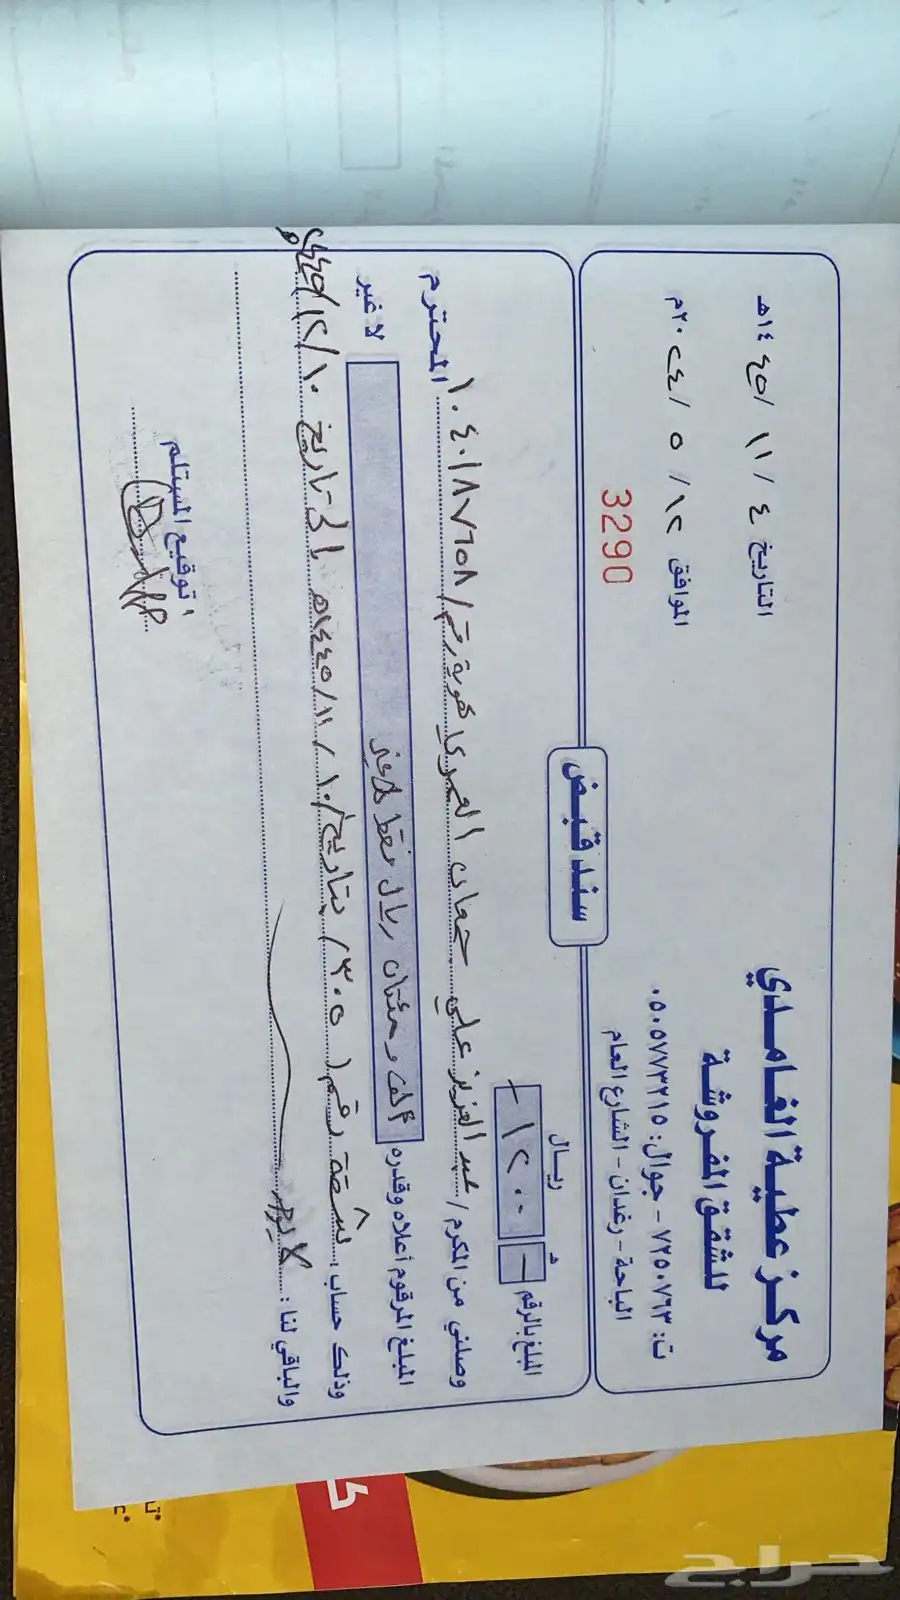 مركز عطية الغامدي
للشقق المفروشة
ت: ٧٢٥٠٧٦٣ - جوال: ٠٥٠٥٧٧٣٢١٥
الباحة - رغدان - الشارع العام
التاريخ ٤ / ١١ / ١٤٤٥هـ
الموافق ١٢ / ٥ / ٢٠٢٤م
3290
سند قبض
ريال
المبلغ بالرقم - ١٢٠٠ -
وصلني من المكرم / عبد العزيز علي جمعان العمري هوية رقم / ١٠٤٠١٨٧٦٥٨ المحترم
المبلغ المرقوم أعلاه وقدره الف ومئتان ريال فقط لاغير لا غير
وذلك حساب : شقة رقم ( ٣٠٥ ) بتاريخ / ١٠ / ١١ / ١٤٤٥هـ الى تاريخ ١٠ / ١٢ /
والباقي لنا : لا يوجد
توقيع المستلم
حراج